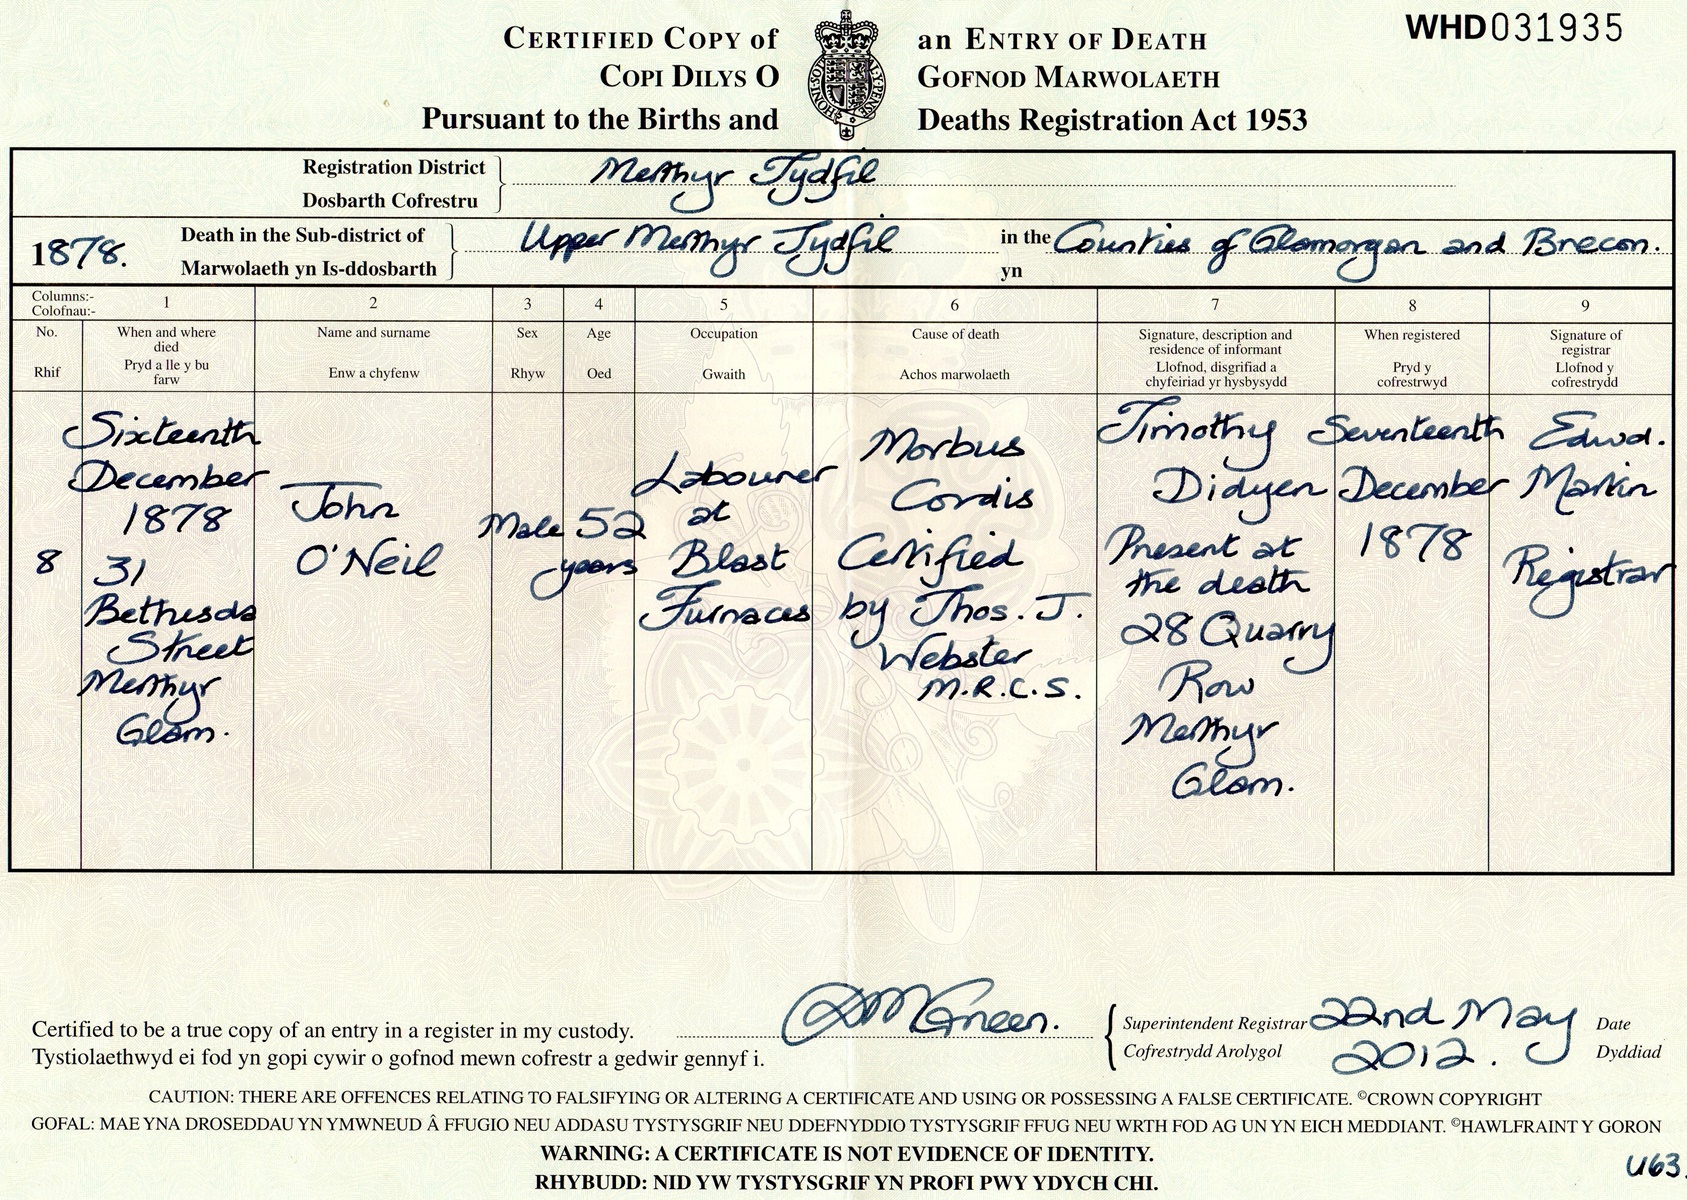 CERTIFIED COPY of an ENTRY OF DEATH
COPI DILYS O GOFNOD MARWOLAETH
Pursuant to the Births and Deaths Registration Act 1953
WHD031935
HONI SOIT QUI MAL Y PENSE
Registration District
Dosbarth Cofrestru
Merthyr Tydfil
1878.
Death in the Sub-district of
Marwolaeth yn Is-ddosbarth
Upper Merthyr Tydfil
in the
yn
Counties of Glamorgan and Brecon.
Columns:- 1 2 3 4 5 6 7 8 9
Colofnau:-
No.
Rhif
When and where
died
Pryd a lle y bu
farw
Name and surname
Enw a chyfenw
Sex
Rhyw
Age
Oed
Occupation
Gwaith
Cause of death
Achos marwolaeth
Signature, description and
residence of informant
Llofnod, disgrifiad a
chyfeiriad yr hysbysydd
When registered
Pryd y
cofrestrwyd
Signature of
registrar
Llofnod y
cofrestrydd
8
Sixteenth
December
1878
31
Bethesda
Street
Merthyr
Glam.
John
O'Neil
Male
52
years
Labourer
at
Blast
Furnaces
Morbus
Cordis
Certified
by Thos. J.
Webster
M.R.C.S.
Timothy
Didyen
Present at
the death
28 Quarry
Row
Merthyr
Glam.
Seventeenth
December
1878
Edwd.
Markin
Registrar
Certified to be a true copy of an entry in a register in my custody.
Tystiolaethwyd ei fod yn gopi cywir o gofnod mewn cofrestr a gedwir gennyf i.
Green.
Superintendent Registrar
Cofrestrydd Arolygol
22nd May
2012.
Date
Dyddiad
CAUTION: THERE ARE OFFENCES RELATING TO FALSIFYING OR ALTERING A CERTIFICATE AND USING OR POSSESSING A FALSE CERTIFICATE. ©CROWN COPYRIGHT
GOFAL: MAE YNA DROSEDDAU YN YMWNEUD Â FFUGIO NEU ADDASU TYSTYSGRIF NEU DDEFNYDDIO TYSTYSGRIF FFUG NEU WRTH FOD AG UN YN EICH MEDDIANT. ©HAWLFRAINT Y GORON
WARNING: A CERTIFICATE IS NOT EVIDENCE OF IDENTITY.
RHYBUDD: NID YW TYSTYSGRIF YN PROFI PWY YDYCH CHI.
U63.